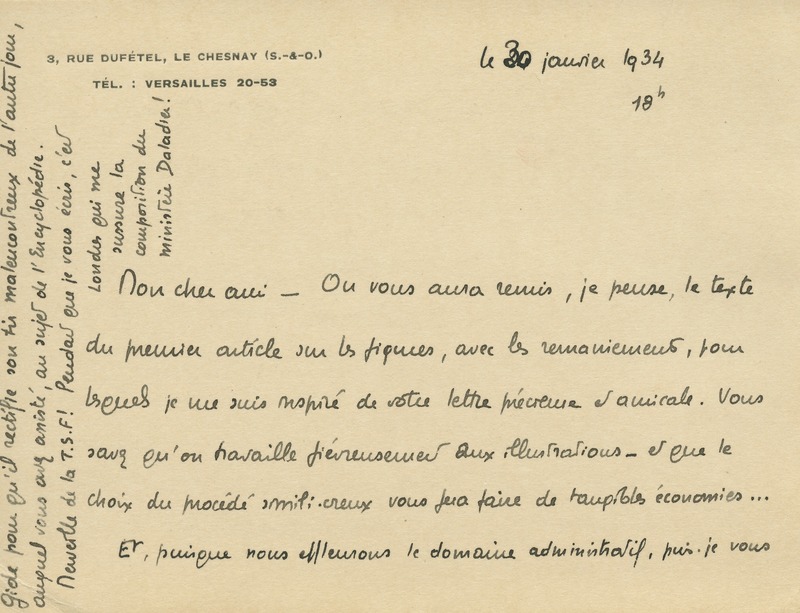 3, RUE DUFÉTEL, LE CHESNAY (S.-&-O.)
TÉL. : VERSAILLES 20-53
le 30 janvier 1934
18h
Mon cher ami — On vous aura remis, je pense, le texte
du premier article sur les figures, avec les remaniements, pour
lesquels je me suis inspiré de votre lettre précieuse et amicale. Vous
savez qu'on travaille fiévreusement aux illustrations — et que le
choix du procédé simili-creux vous fera faire de tangibles économies...
Et, puisque nous effleurons le domaine administratif, puis-je vous
Gide pour qu'il rectifie son tir malencontreux de l'autre jour,
auquel vous avez assisté, au sujet de l'Encyclopédie.
Merveille de la T.S.F! Pendant que je vous écris, c'est
Londres qui me
susurre la
composition du
ministère Daladier!